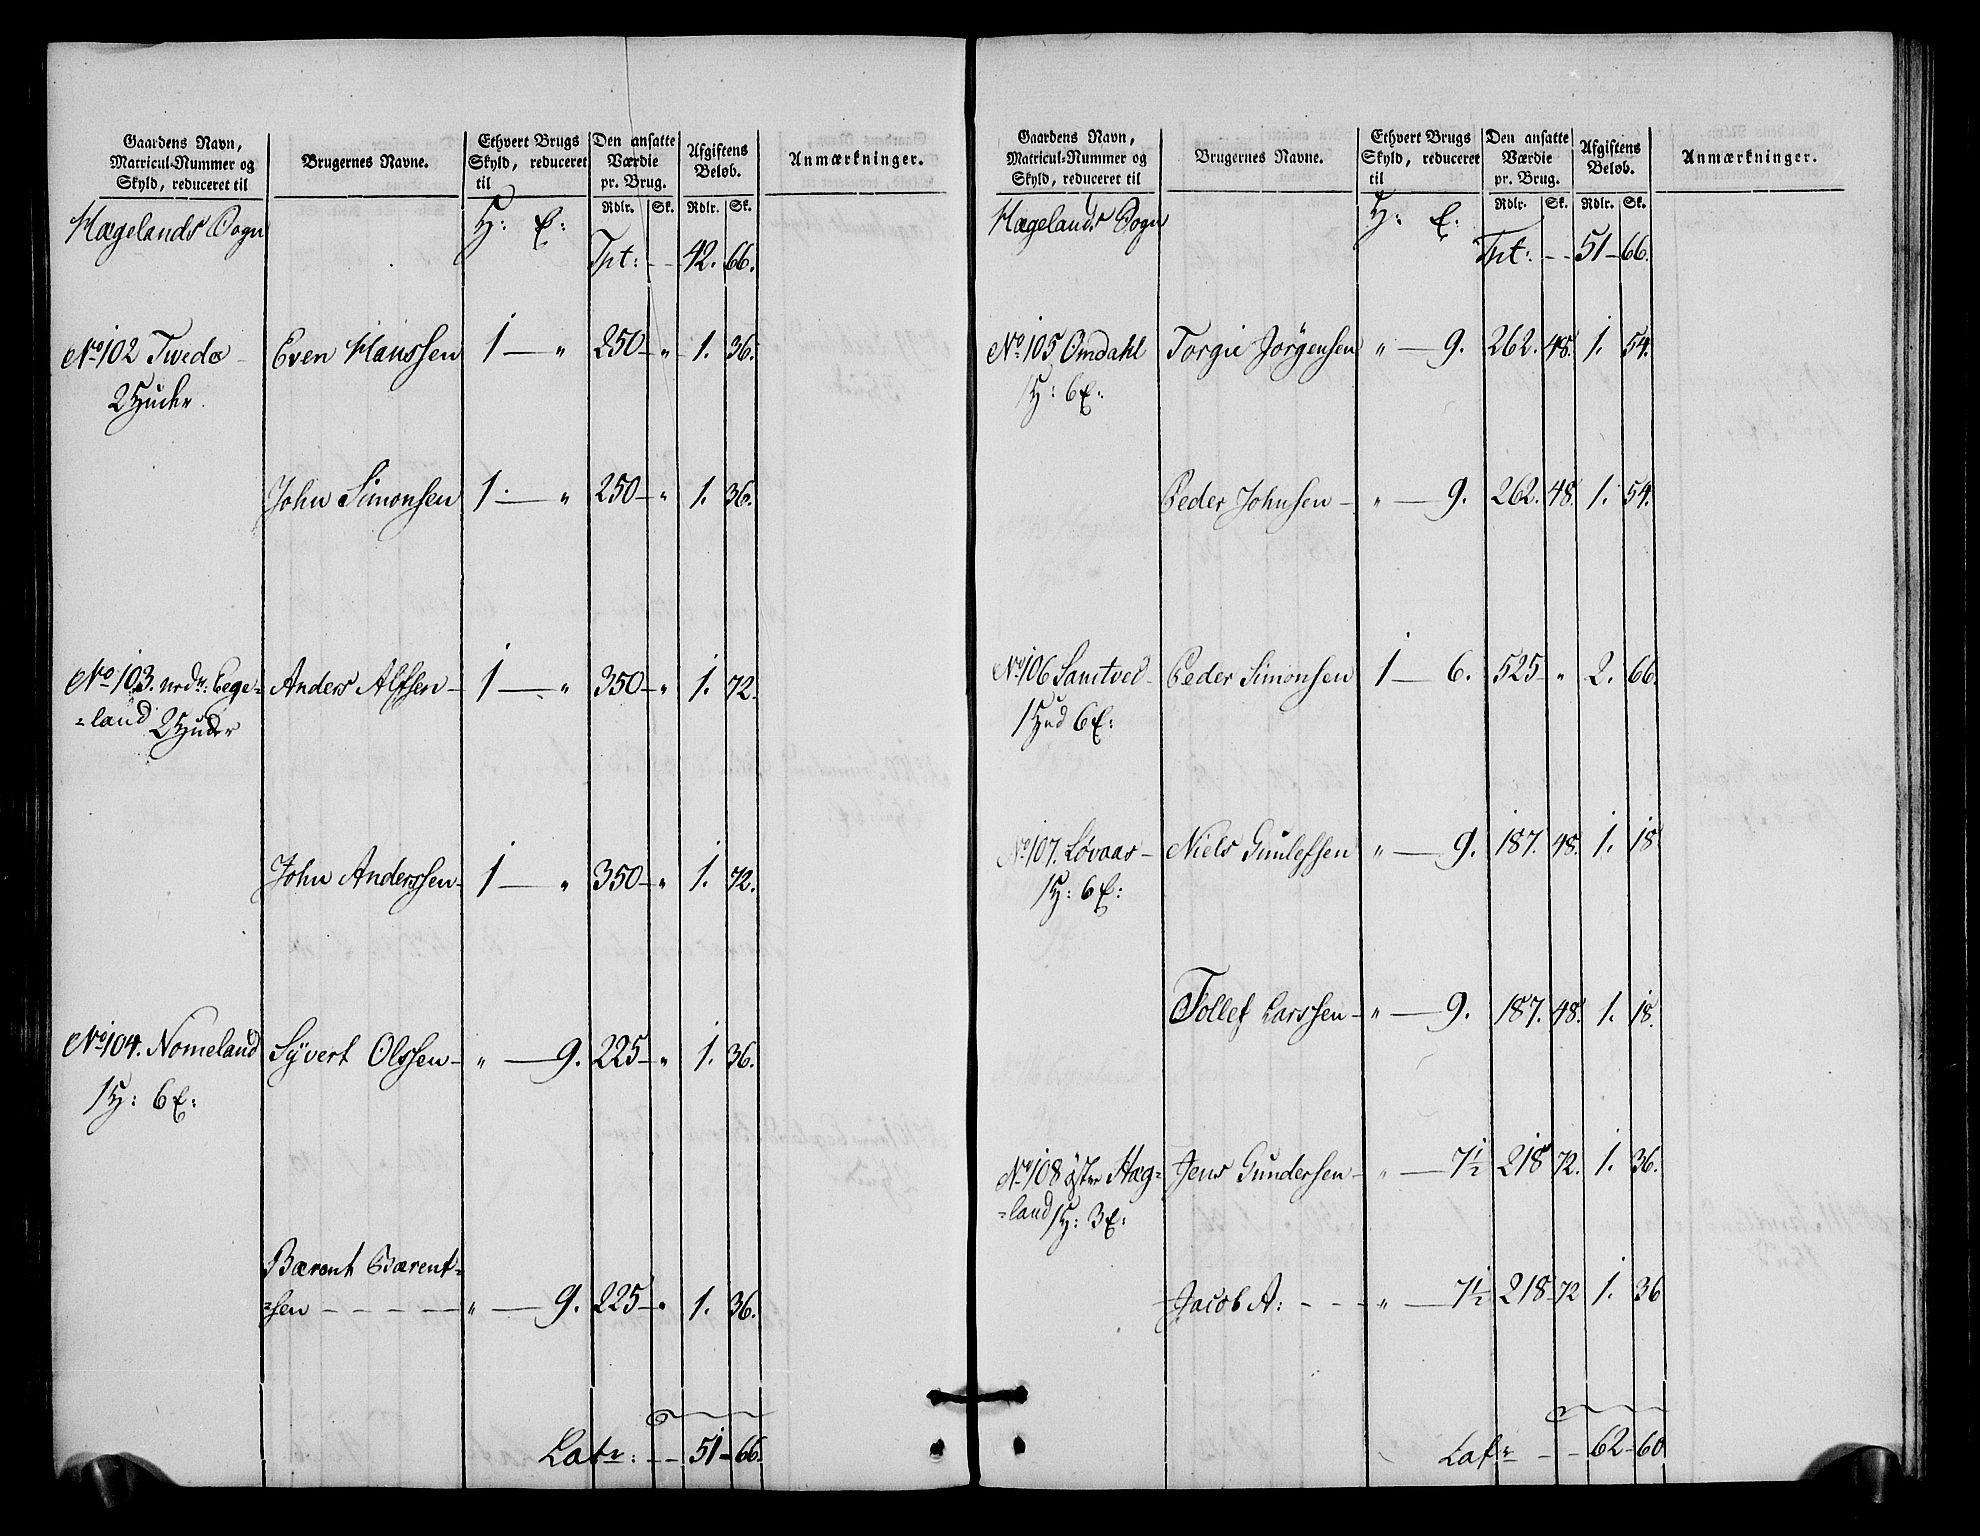 Gaardens Navn, Matricul-Nummer og Skyld, reduceret til | Brugernes Navne. | Ethvert Brugs Skyld, reduceret til | Den ansatte Værdie pr. Brug. | Afgiftens Beløb. | Anmærkninger.
Rdlr. Sk. Rdlr. Sk.
Hægelands Sogn H: E:
Tpt: - - 42. 66.
No 102 Twede - Even Hanssen 1 — „ 250 — „ 1. 36.
2 Huder
John Simonsen 1. — „ 250 — „ 1. 36.
No 103. nrdr: Eege= Anders Alfsen - 1 — „ 350 — „ 1. 72.
=land 2 Huder
John Anderssen - 1 — „ 350 — „ 1. 72.
No 104. Nomeland Syvert Olssen - „ — 9. 225 — „ 1. 36.
1 H: 6 E:
Bærent Bærent=
=sen - - - - - „ — 9. 225 — „ 1. 36.
Latr: - - 51 - 66.
Gaardens Navn, Matricul-Nummer og Skyld, reduceret til | Brugernes Navne. | Ethvert Brugs Skyld, reduceret til | Den ansatte Værdie pr. Brug. | Afgiftens Beløb. | Anmærkninger.
Rdlr. Sk. Rdlr. Sk.
Hægelands Sogn H: E:
Tpt: - - 51 - 66.
No 105 Omdahl Torgie Jörgensen „ — 9. 262. 48. 1. 54.
1 H: 6 E:
Peder Johnsen - „ — 9. 262. 48. 1. 54.
No 106 Santved - Peder Simonsen 1 — 6. 525 - „ 2. 66.
1 Hud 6 E:
No 107. Løvaas - Niels Gunlefsen „ — 9. 187. 48. 1. 18
1 H: 6 E:
Tollef Larssen - „ — 9. 187. 48. 1. 18.
No 108 öster Hæg= Jens Gundersen - „ — 7½ 218 72. 1. 36.
=land 1 H: 3 E:
Jacob A: - - - „ — 7½ 218 - 72 1. 36
Latr - - 62 - 60